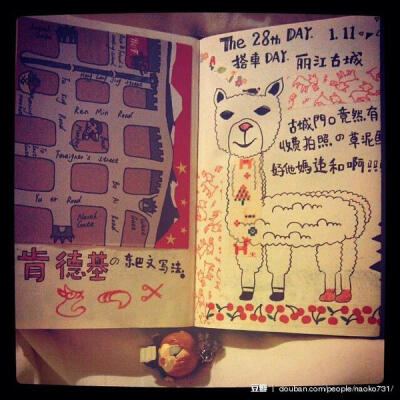 Ren Min Road
Foreigner's street
Bo Ai Road
Yu er Road
North Gate
肯德基の东巴文写法。
The 28th DAY. 1.11
搭車DAY. 丽江古城
古城門口竟然有
收費拍照の草泥馬
好他媽违和啊!!!
豆瓣 douban.com/people/naoko731/